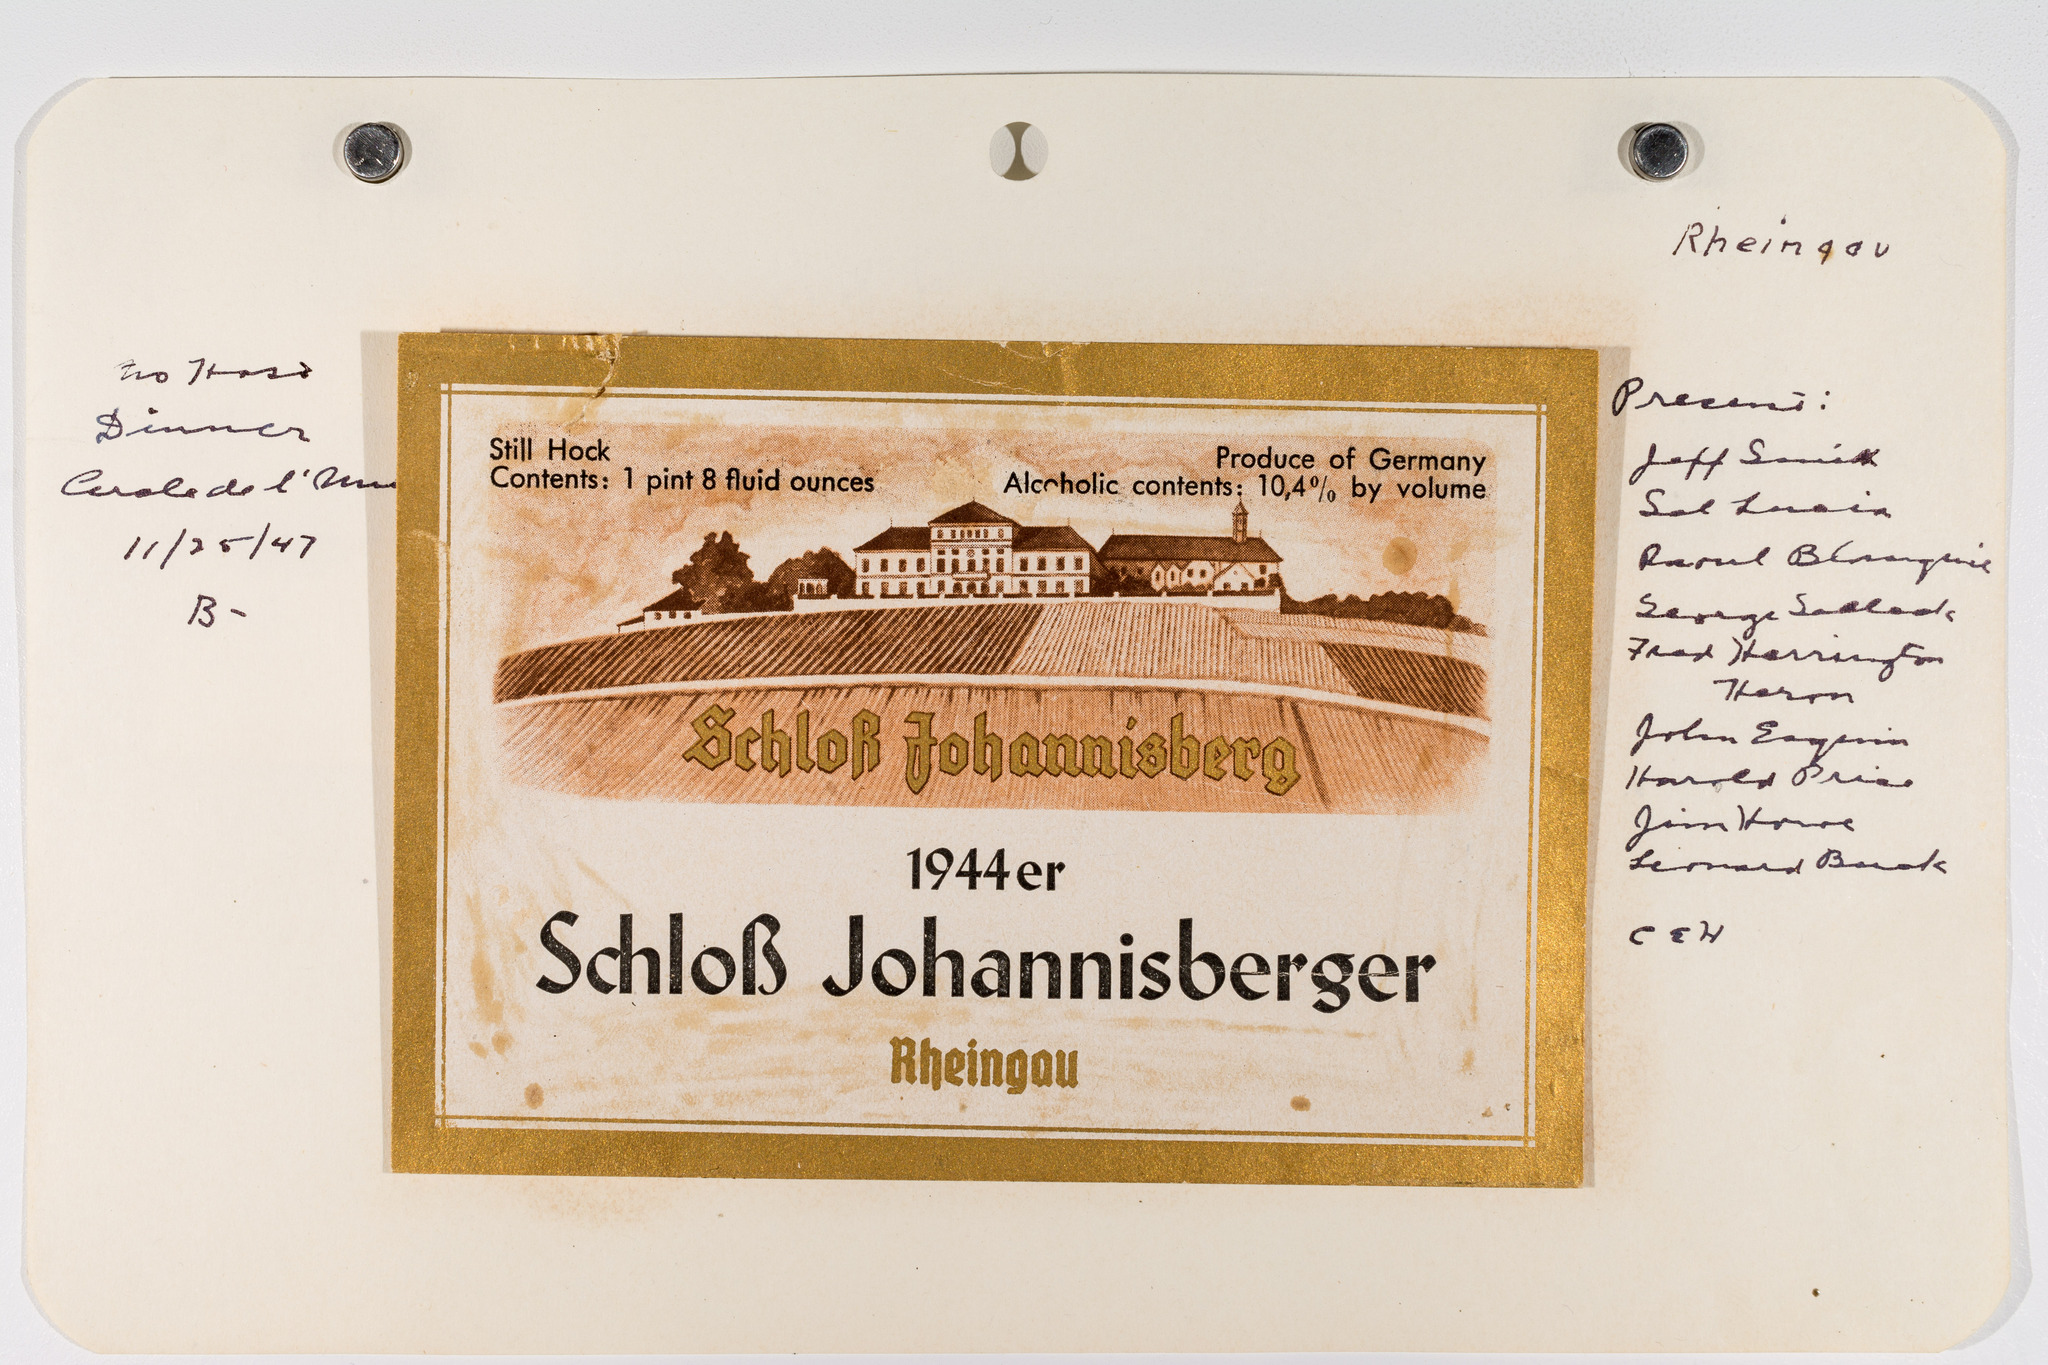 Rheingau
No Host
Dinner
Cercle de l'Union
11/25/47
B-
Still Hock
Contents: 1 pint 8 fluid ounces
Produce of Germany
Alcoholic contents: 10,4% by volume
Schloß Johannisberg
1944er
Schloß Johannisberger
Rheingau
Present:
Jeff Smith
Sal Lucia
Raoul Blanquie
George Selleck
Fred Harrington
Heron
John Esquin
Harold Price
Jim Howe
Leonard Buck
CEH